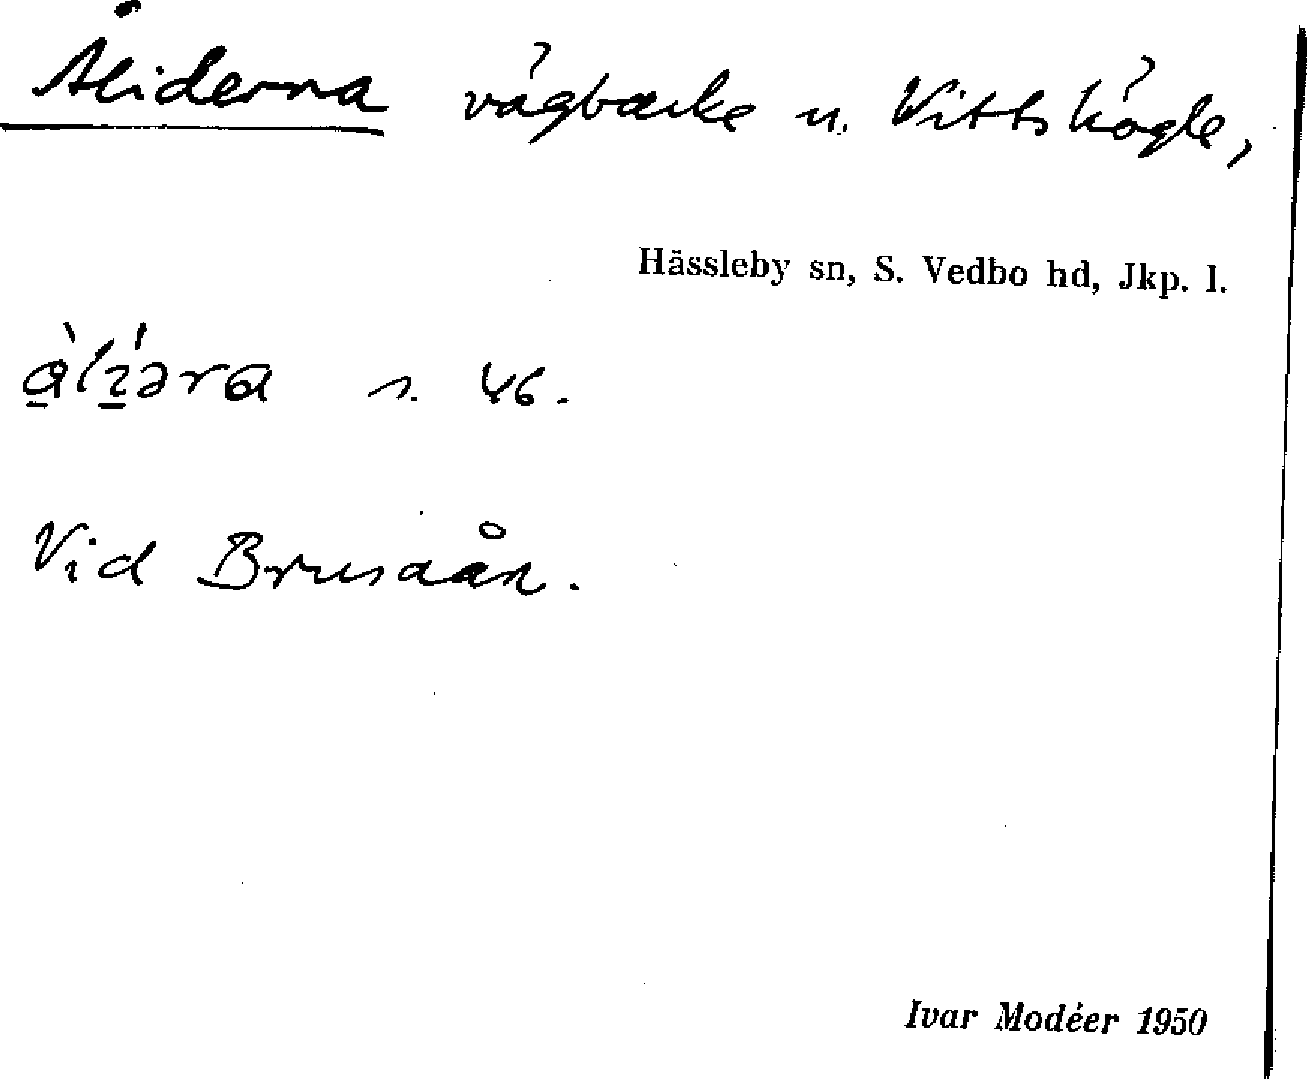 Åliderna vägbacke u. Vittskögle,
Hässleby sn, S. Vedbo hd, Jkp. l.
s. 46.
Vid Brusaån.
Ivar Modéer 1950